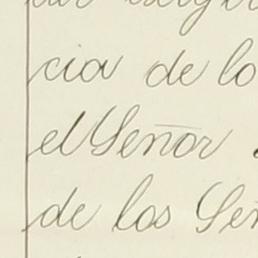 cia de lo
el Señor
de los Señ